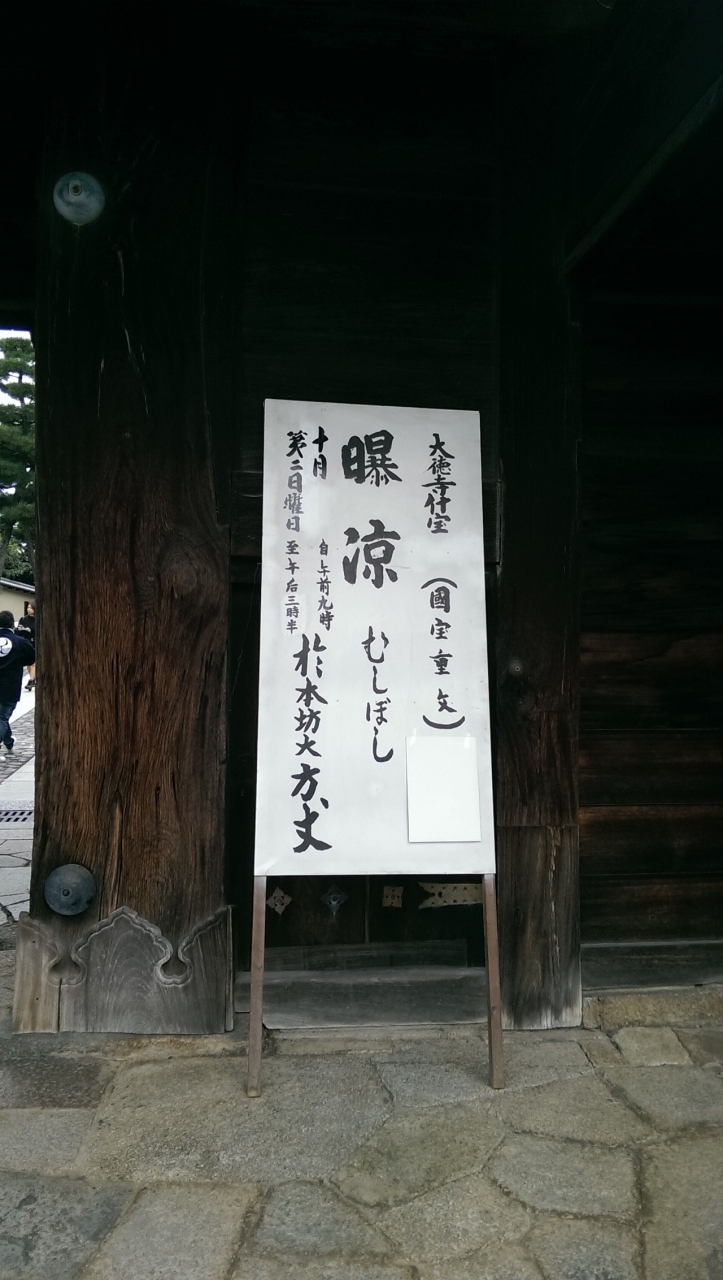 大徳寺什宝
(國宝重文)
曝凉 むしぼし
十月
第二日曜日
自午前九時
至午后三時半
於本坊大方丈